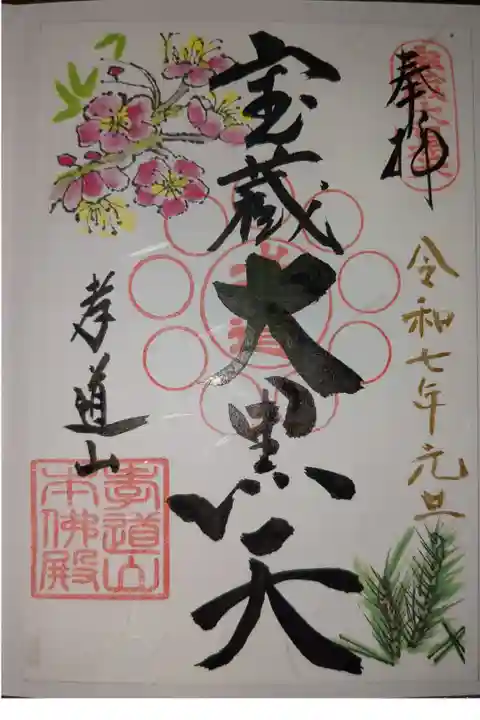 奉拝
令和七年元旦
宝蔵大黒天
孝道
孝道山
孝道山
本佛殿